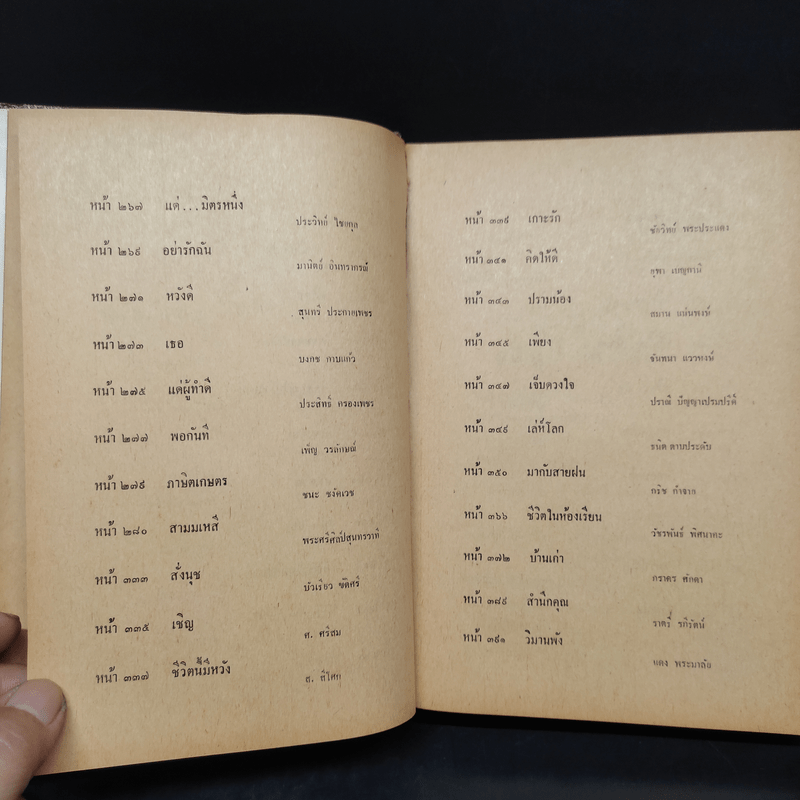 หน้า ๒๖๗ แด่...มิตรหนึ่ง
ประวิทย์ ไชยกุล
หน้า ๒๖๙ อย่ารักฉัน
มานิตย์ อินทราภรณ์
หน้า ๒๗๑ หวังดี
สุนทรี ประกายเพชร
หน้า ๒๗๓ เธอ
บงกช กาบแก้ว
หน้า ๒๗๕ แด่ผู้ทำดี
ประสิทธิ์ ครองเพชร
หน้า ๒๗๗ พอกันที
เพ็ญ วรลักษณ์
หน้า ๒๗๙ ภาษิตเกษตร
ชนะ ชงัดเวช
หน้า ๒๘๐ สามมเหสี
พระศรีศิลปสุนทรวาที
หน้า ๓๓๓ สั่งนุช
บัวเรียว
หน้า ๓๓๕ เชิญ
ศ. ศรีสม
หน้า ๓๓๗ ชีวิตนี้มีหวัง
ส. สีโศก
หน้า ๓๓๙ เกาะรัก
ชัยวิทย์ พระประแดง
หน้า ๓๔๑ คิดให้ดี
หน้า ๓๔๓ ปรามน้อง
สมาน
หน้า ๓๔๕ เพียง
ฉันทนา แววหงษ์
หน้า ๓๔๗ เจ็บดวงใจ
ปราณี ปัญญาเปรมปรีดิ์
หน้า ๓๔๙ เล่ห์โลก
ธนิต ดาบประดับ
หน้า ๓๕๐ มากับสายฝน
หน้า ๓๖๖ ชีวิตในห้องเรียน
วัชรพันธ์ พิศนาคะ
หน้า ๓๗๒ บ้านเก่า
ภราดร ศักดา
หน้า ๓๘๙ สำนึกคุณ
ราตรี รภีรัตน์
หน้า ๓๙๑ วิมานพัง
แดง พระมาลัย